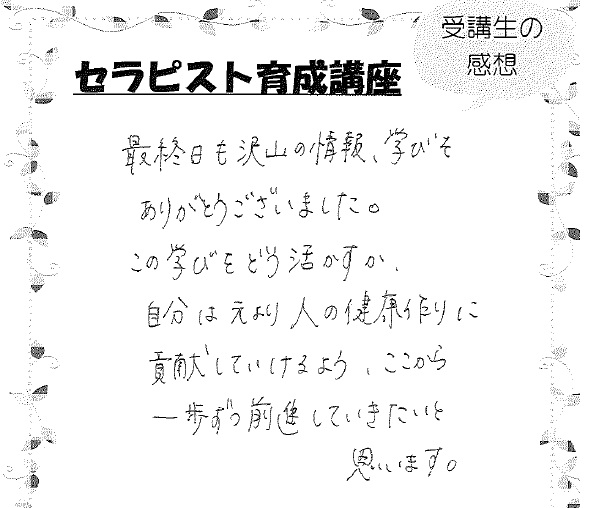 受講生の
感想
セラピスト育成講座
最終日も沢山の情報、学びを
ありがとうございました。
この学びをどう活かすか、
自分は元より人の健康作りに
貢献していけるよう、ここから
一歩ずつ前進していきたいと
思います。